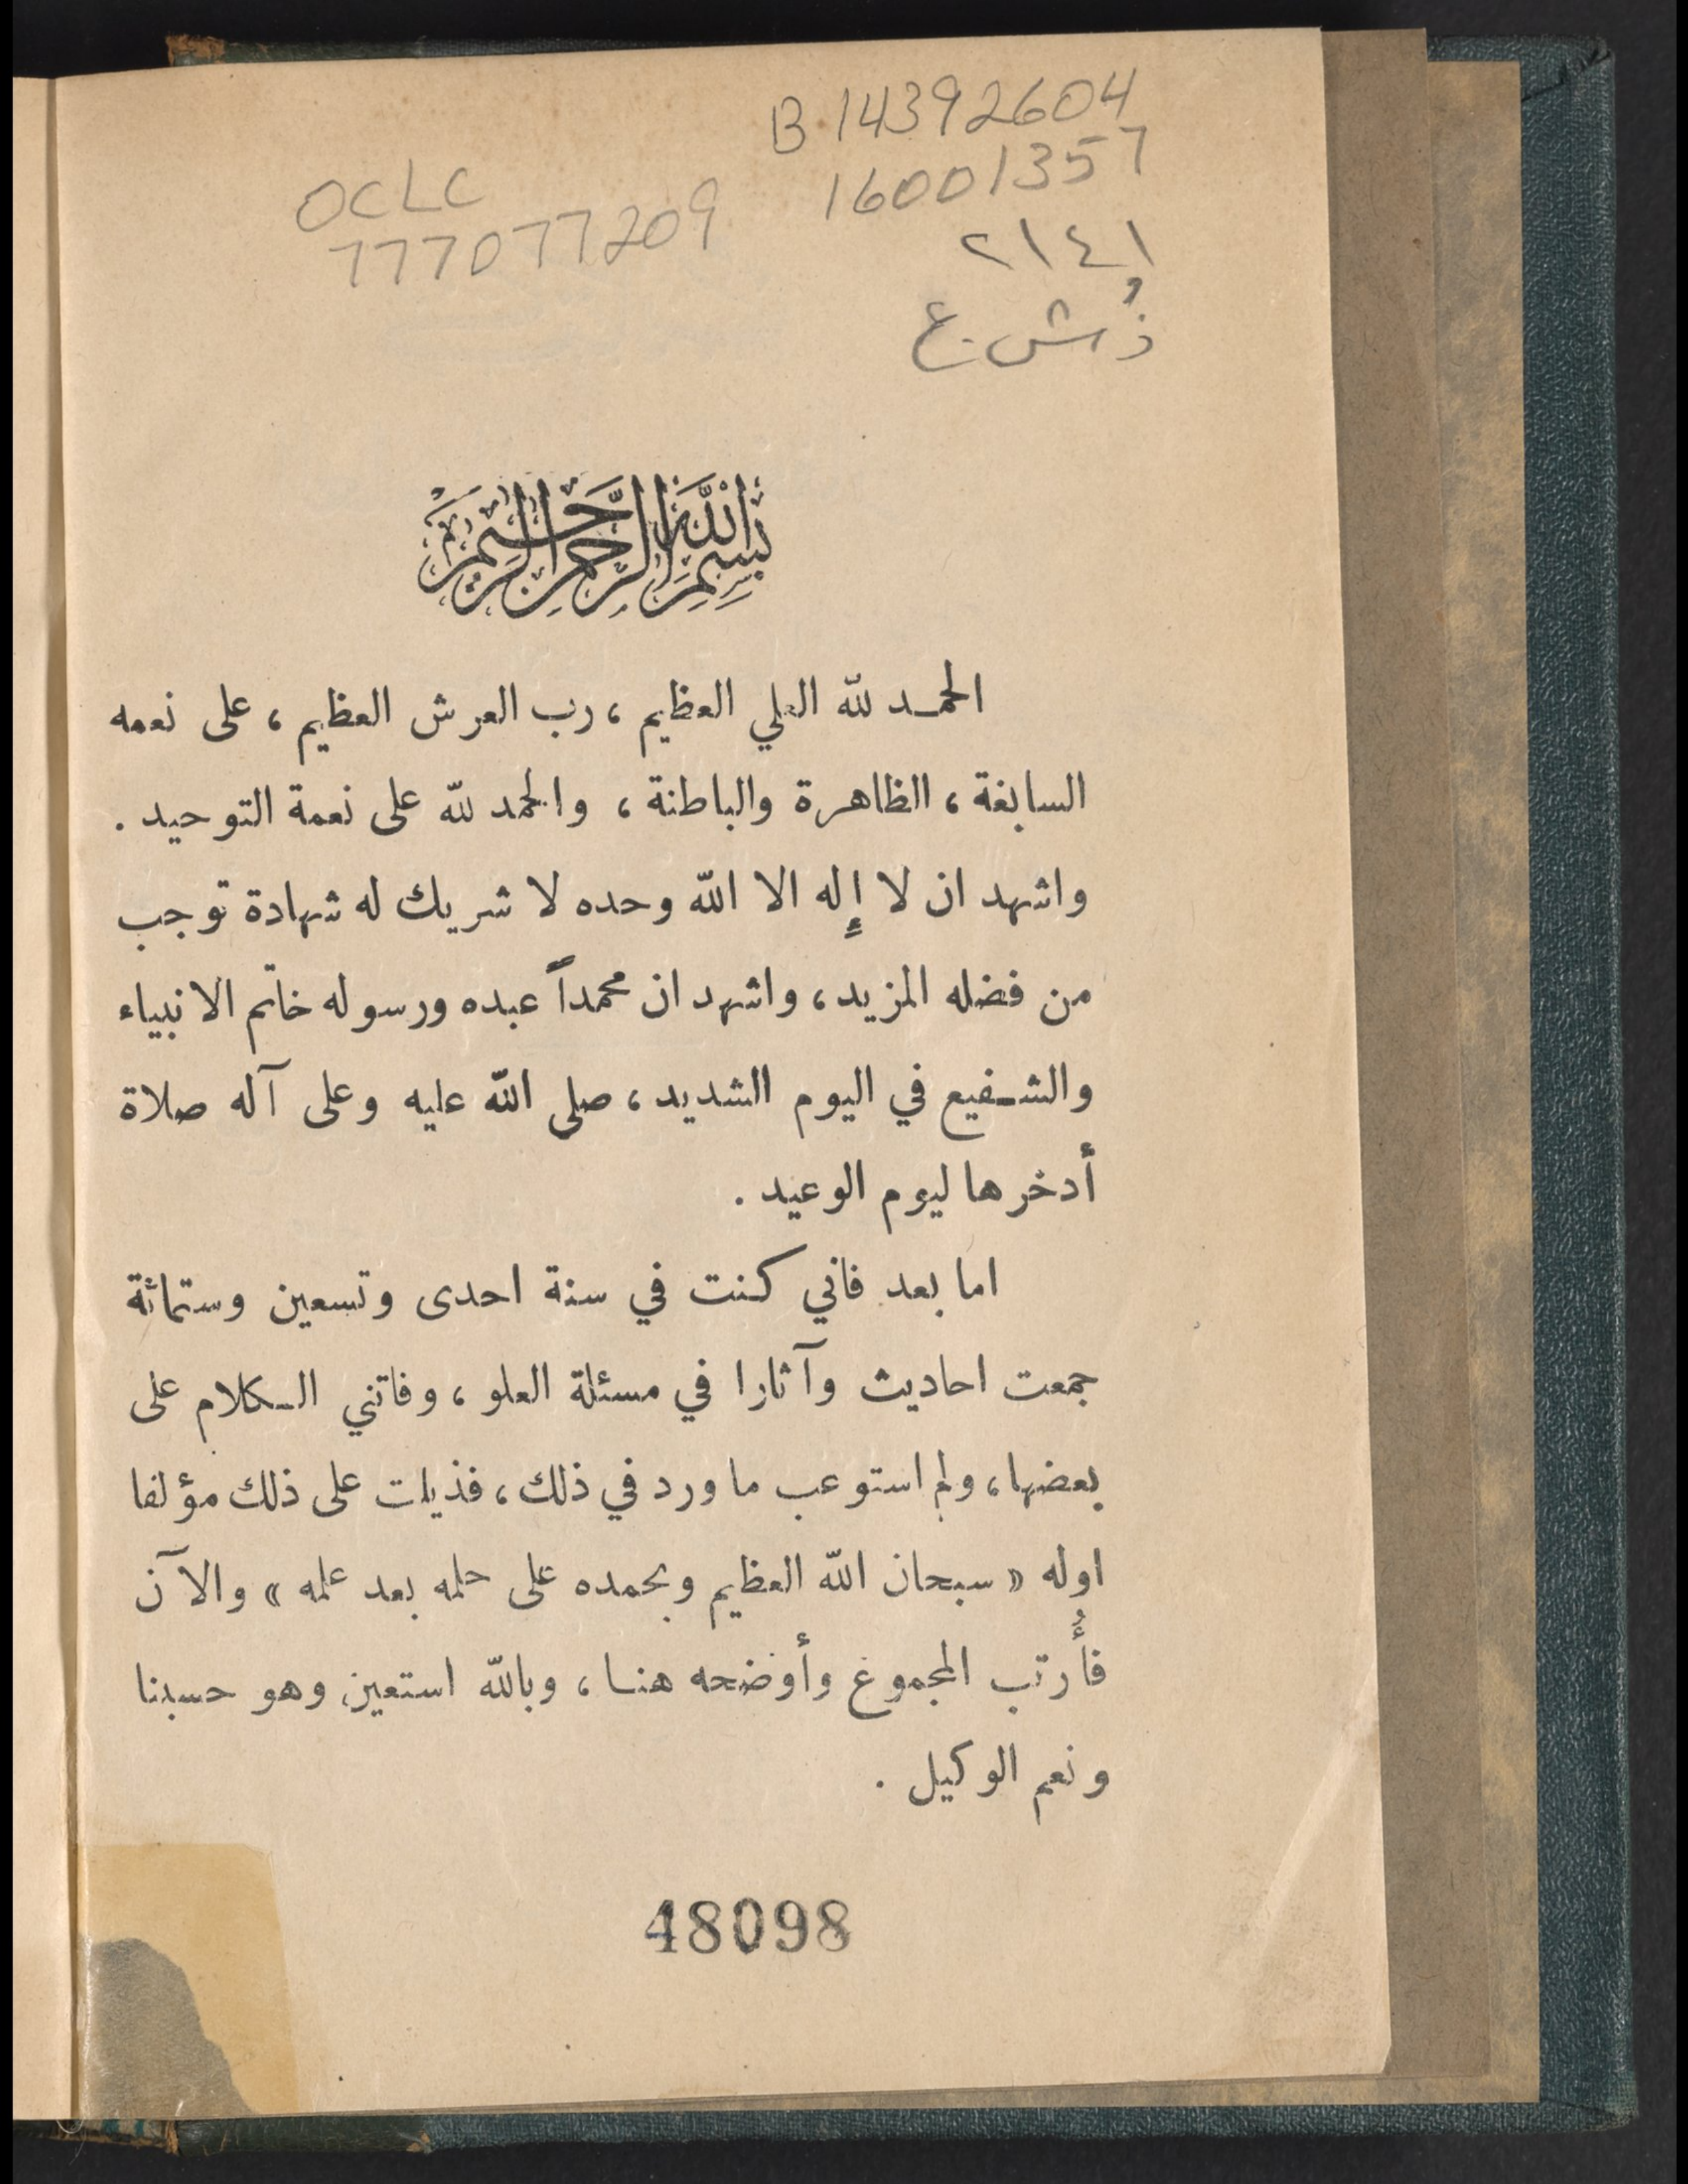 B 14392604
16001357
OCLC
777077209
٢١٤١
ذ ش.ع
بسم الله الرحمن الرحيم
الحمد لله العلي العظيم ، رب العرش العظيم ، على نعمه
السابغة ، الظاهرة والباطنة ، والحمد لله على نعمة التوحيد .
واشهد ان لا إله الا الله وحده لا شريك له شهادة توجب
من فضله المزيد ، واشهد ان محمداً عبده ورسوله خاتم الانبياء
والشفيع في اليوم الشديد ، صلى الله عليه وعلى آله صلاة
أدخرها ليوم الوعيد .
اما بعد فاني كنت في سنة احدى وتسعين وستمائة
جمعت احاديث وآثارا في مسئلة العلو ، وفاتني الكلام على
بعضها ، ولم استوعب ما ورد في ذلك ، فذيلت على ذلك مؤلفا
اوله « سبحان الله العظيم وبحمده على حلمه بعد علمه » والآن
فأُرتب المجموع وأوضحه هنا ، وبالله استعين وهو حسبنا
ونعم الوكيل .
48098